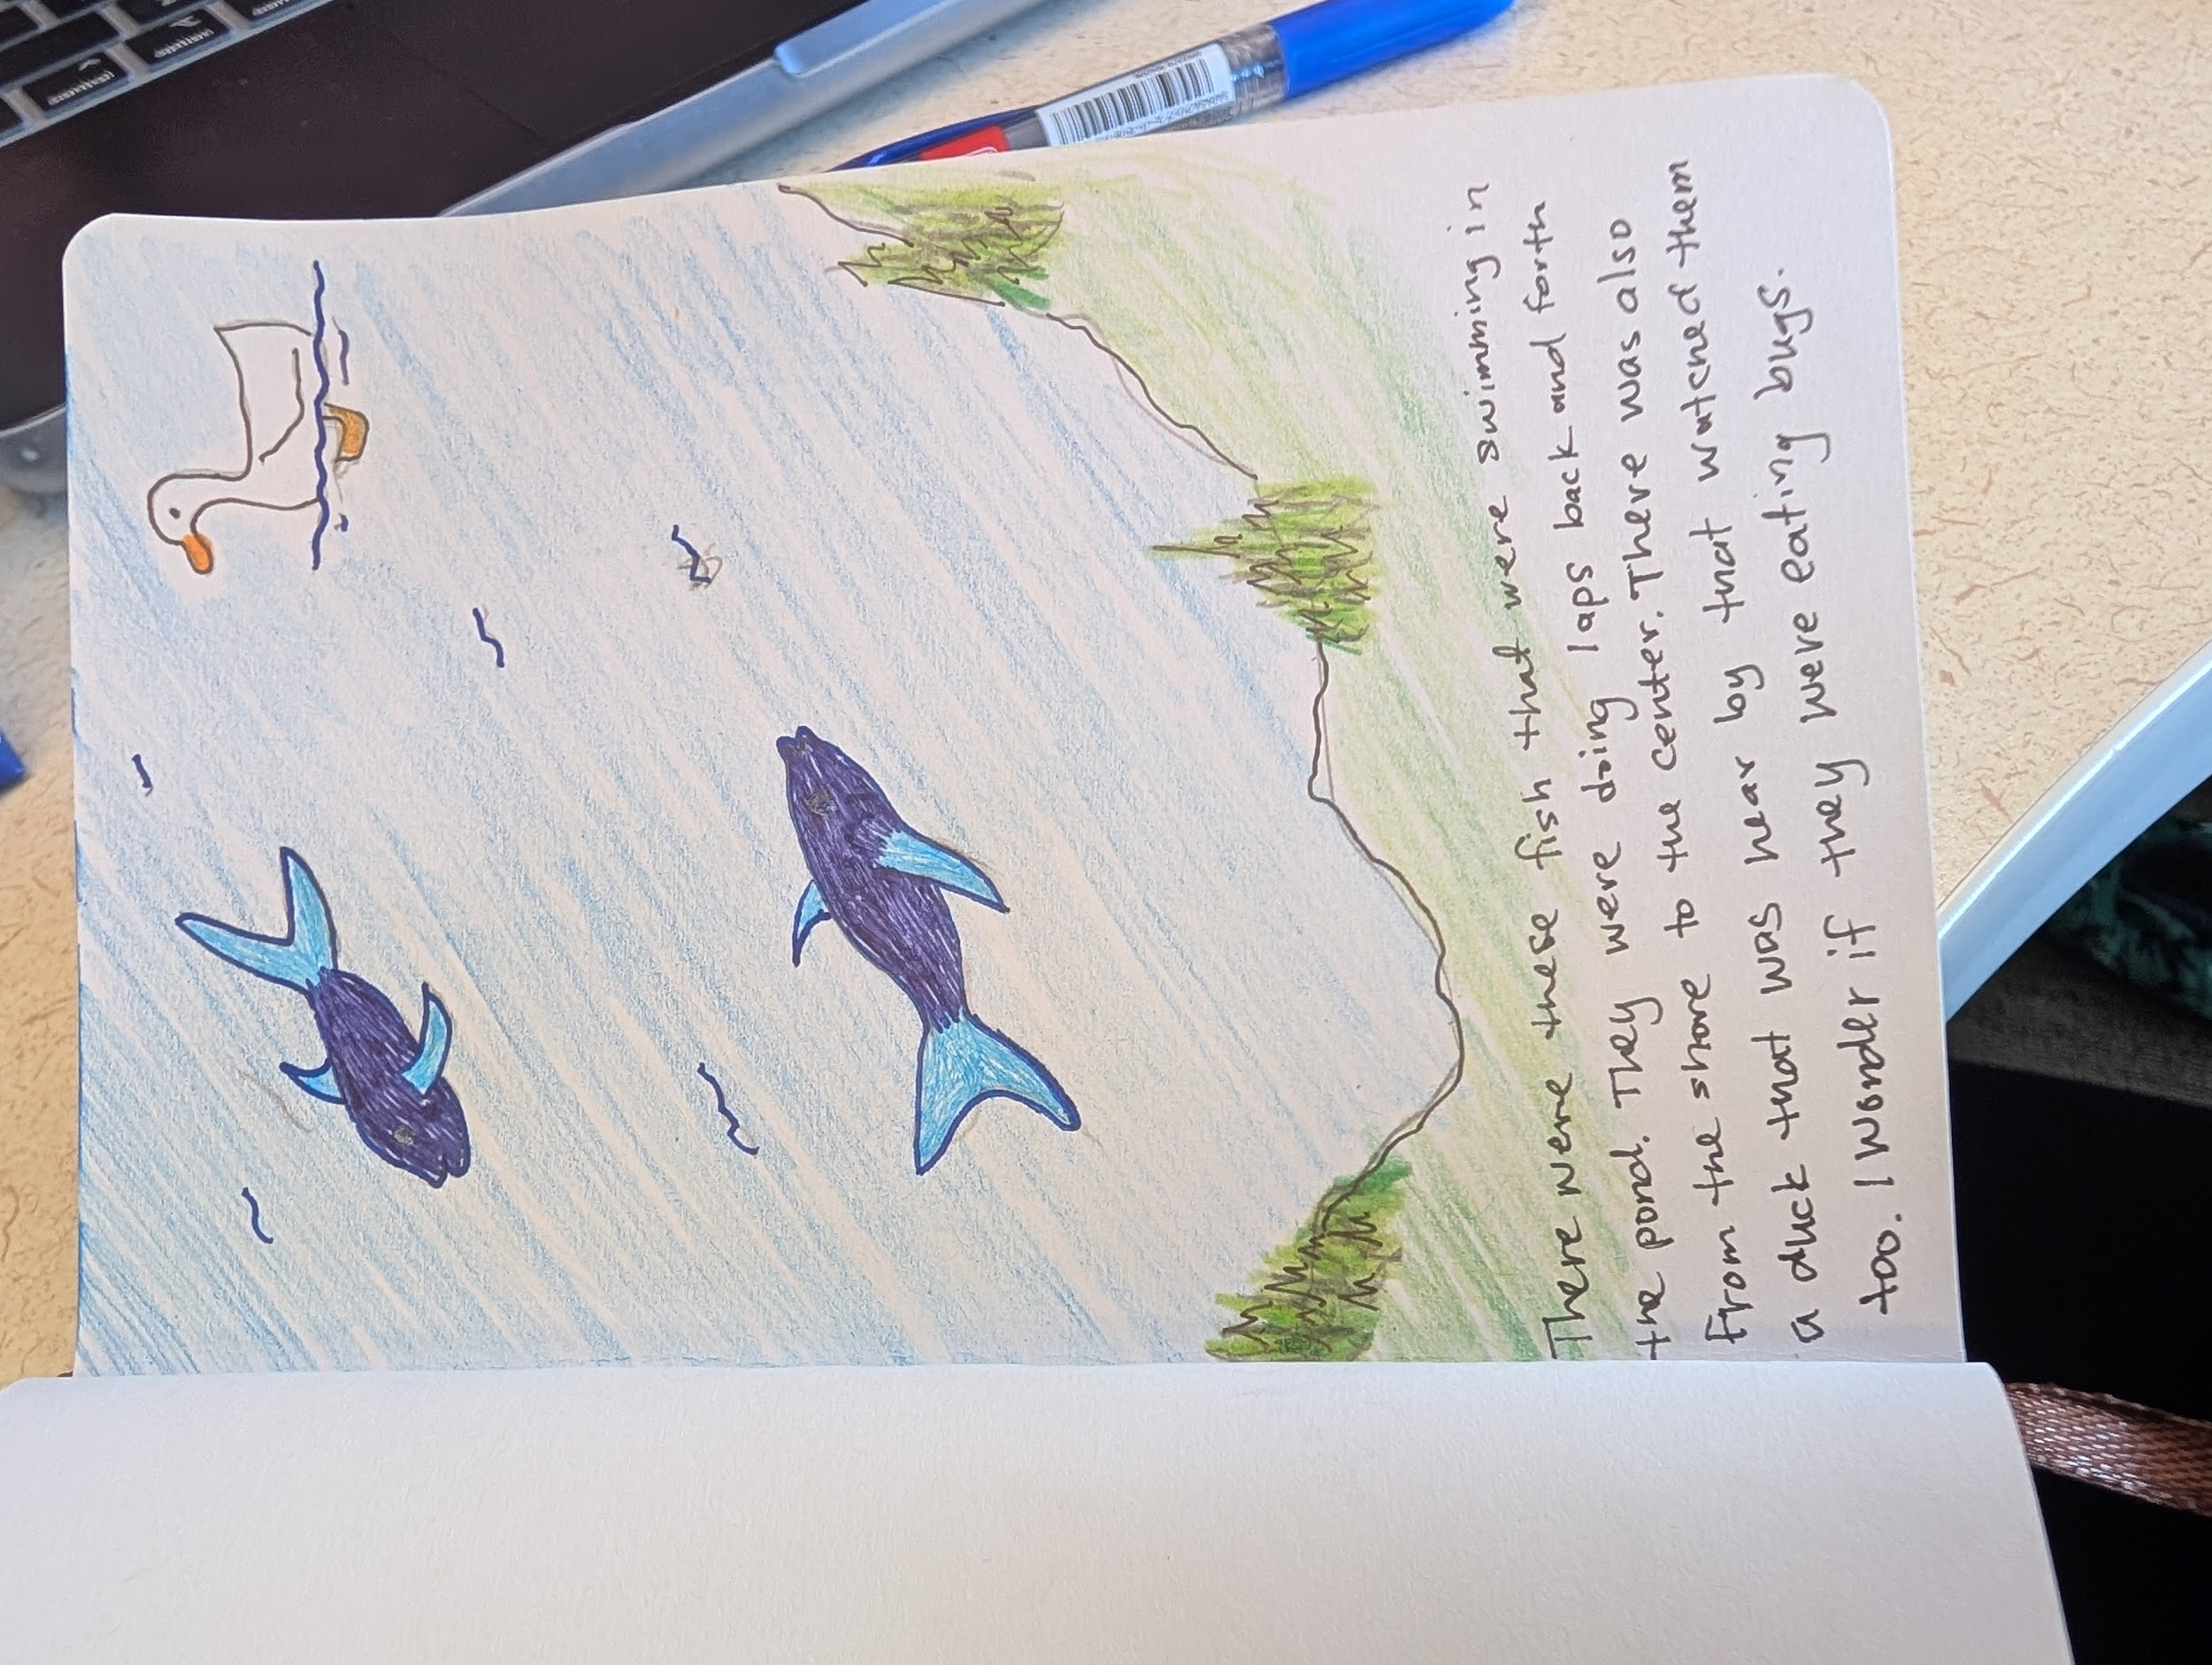 There were these fish that were swimming in
the pond. They were doing laps back and forth
from the shore to the center. There was also
a duck that was near by that watched them
too. I wonder if they were eating bugs.